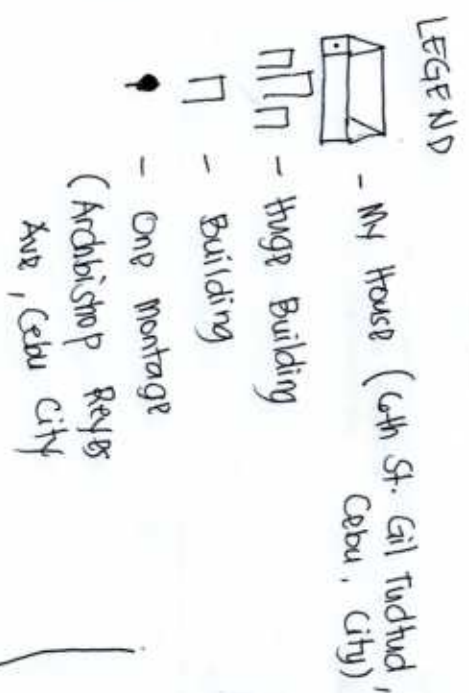 LEGEND
- My House (6th St. Gil Tudtud,
Cebu, City)
- Huge Building
- Building
- One Montage
(Archbishop Reyes
Ave, Cebu City